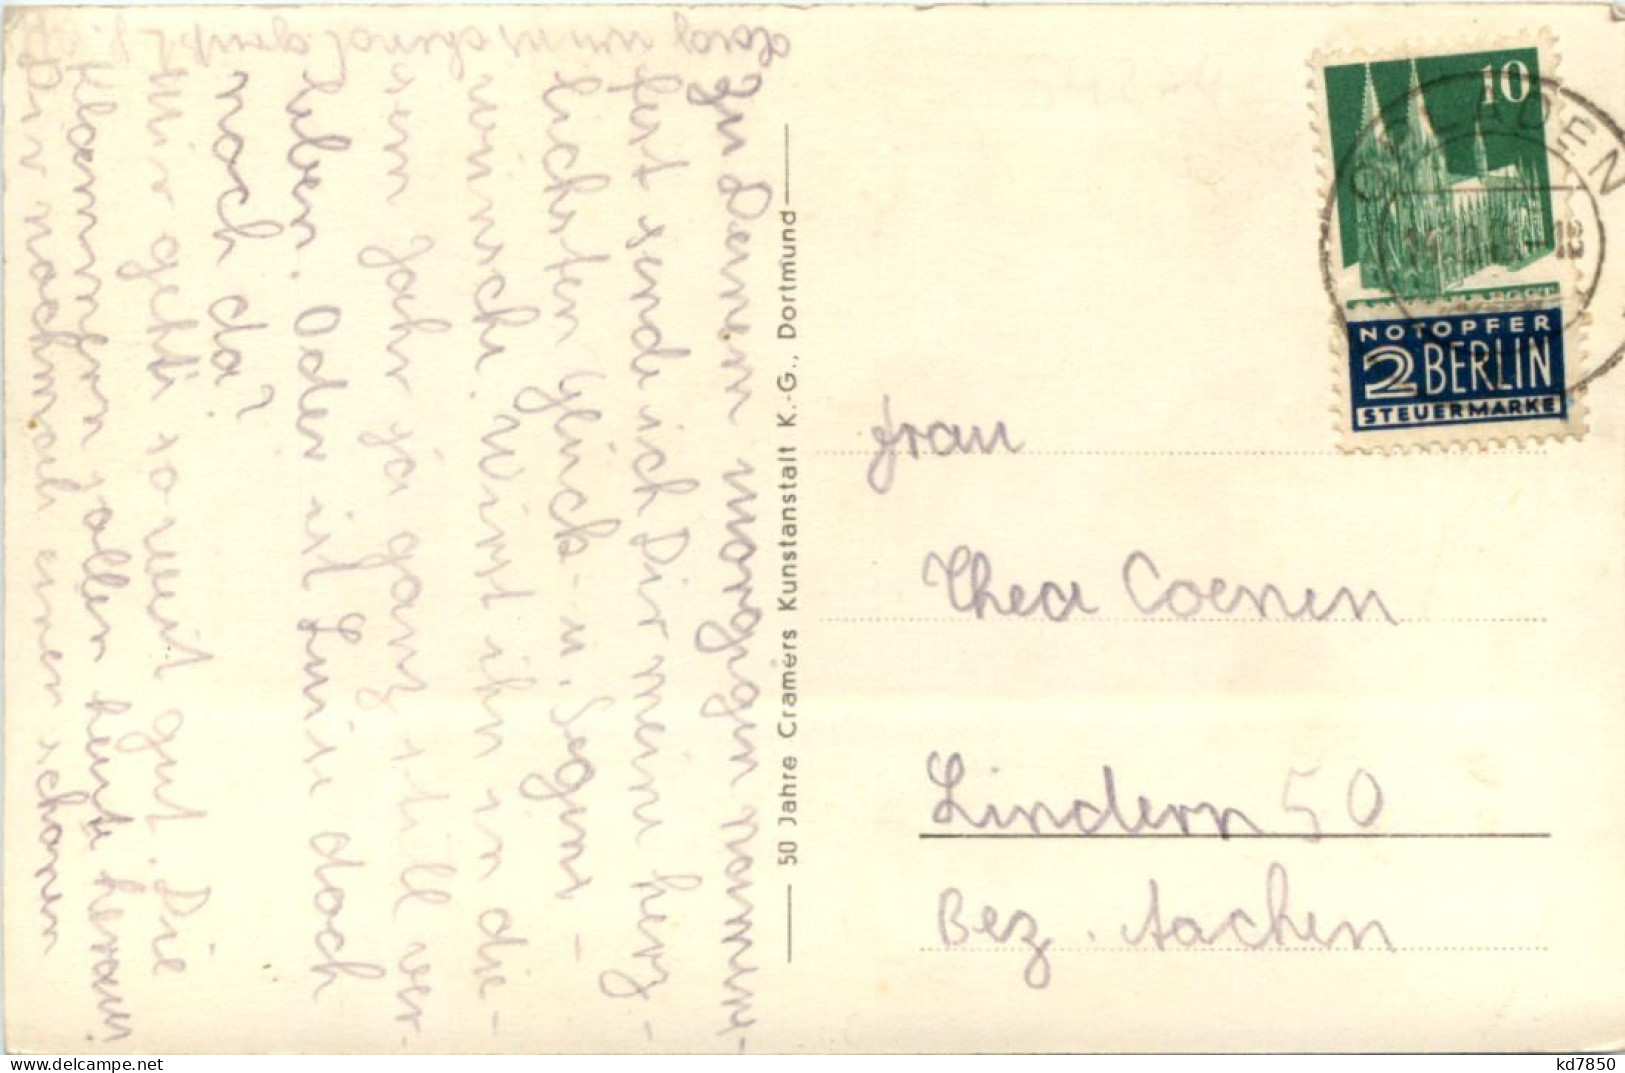 Zu Deinem morgigen Namens-
fest sende ich Dir meine herz-
lichsten Glück- u. Segens-
wünsche. Wirst ihn in die-
sem Jahr ja ganz still ver-
leben. Oder ist Luise doch
noch da?
Mir geht's soweit gut. Die
Klammern sollen heute heraus
Dir nochmals einen schönen
50 Jahre Cramers Kunstanstalt K.-G., Dortmund
10
OPLADEN
NOTOPFER
2 BERLIN
STEUERMARKE
Frau
Thea Coenen
Lindern 50
Bez. Aachen
delcampe.net
kd7850